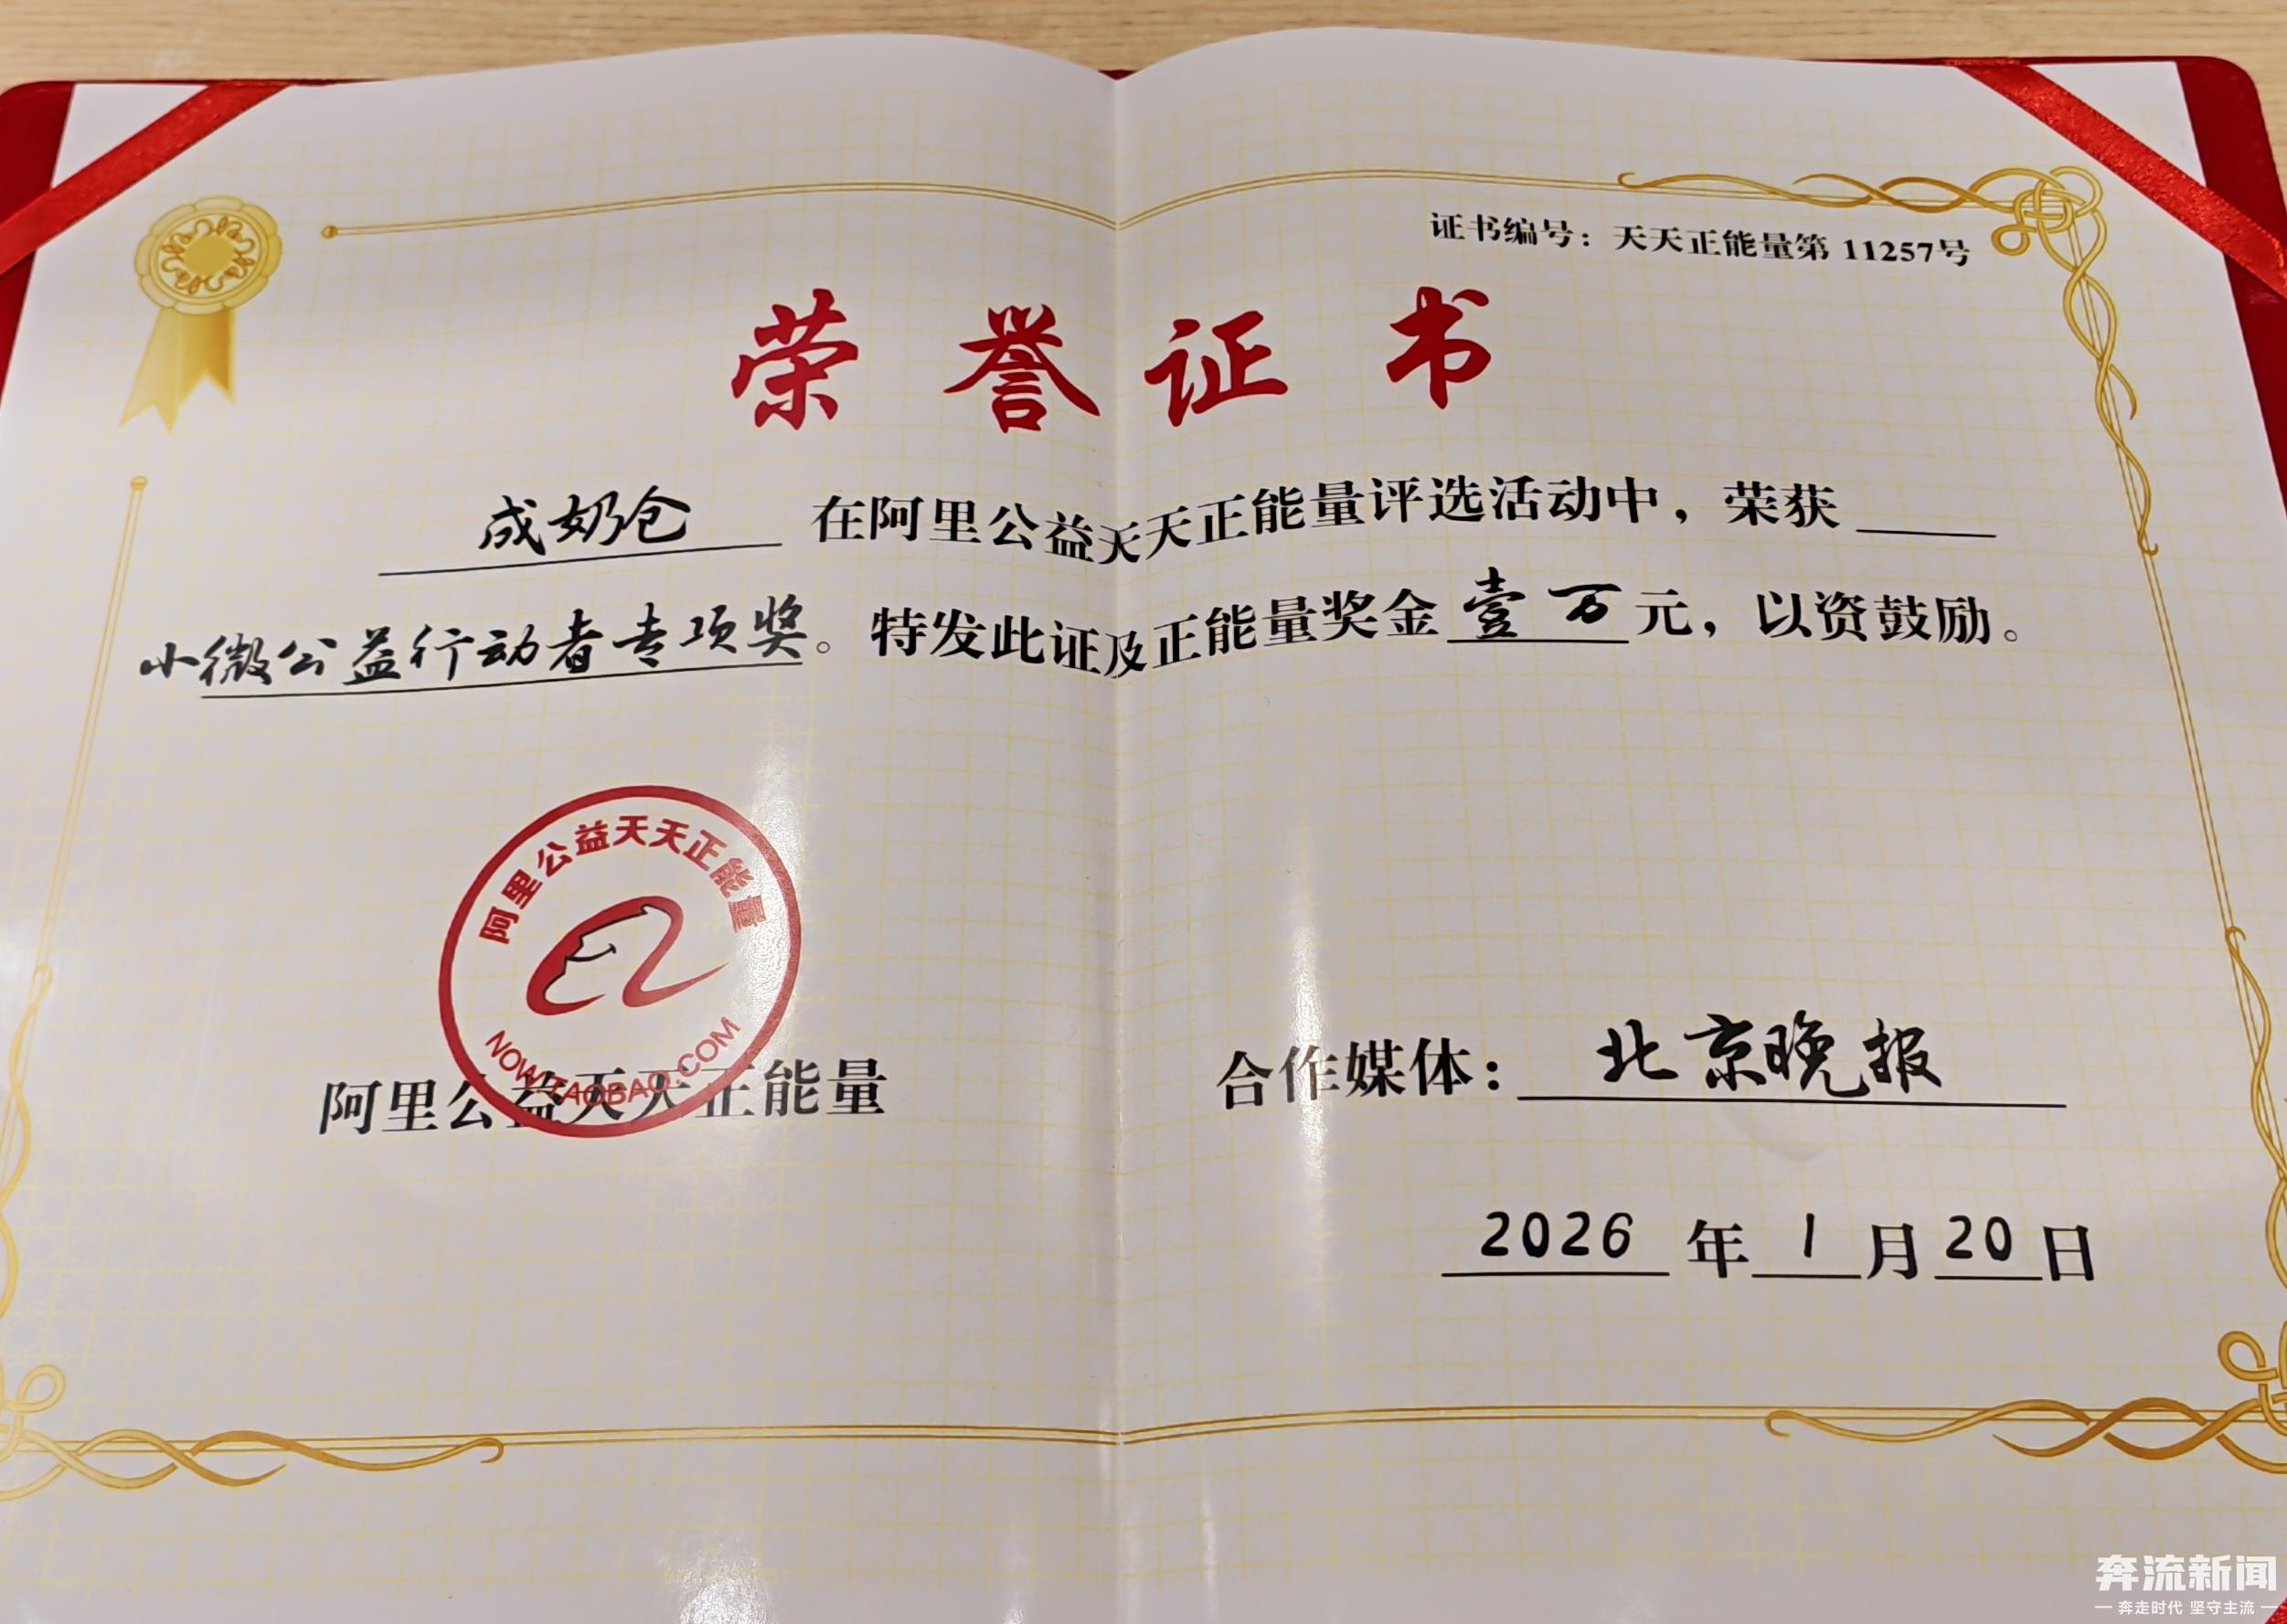 证书编号：天天正能量第 11257号
荣誉证书
成奶仓 在阿里公益天天正能量评选活动中，荣获
小微公益行动者专项奖。特发此证及正能量奖金壹万元，以资鼓励。
阿里公益天天正能量
NOW.TAOBAO.COM
阿里公益天天正能量
合作媒体：北京晚报
2026年1月20日
奔流新闻
奔走时代 坚守主流